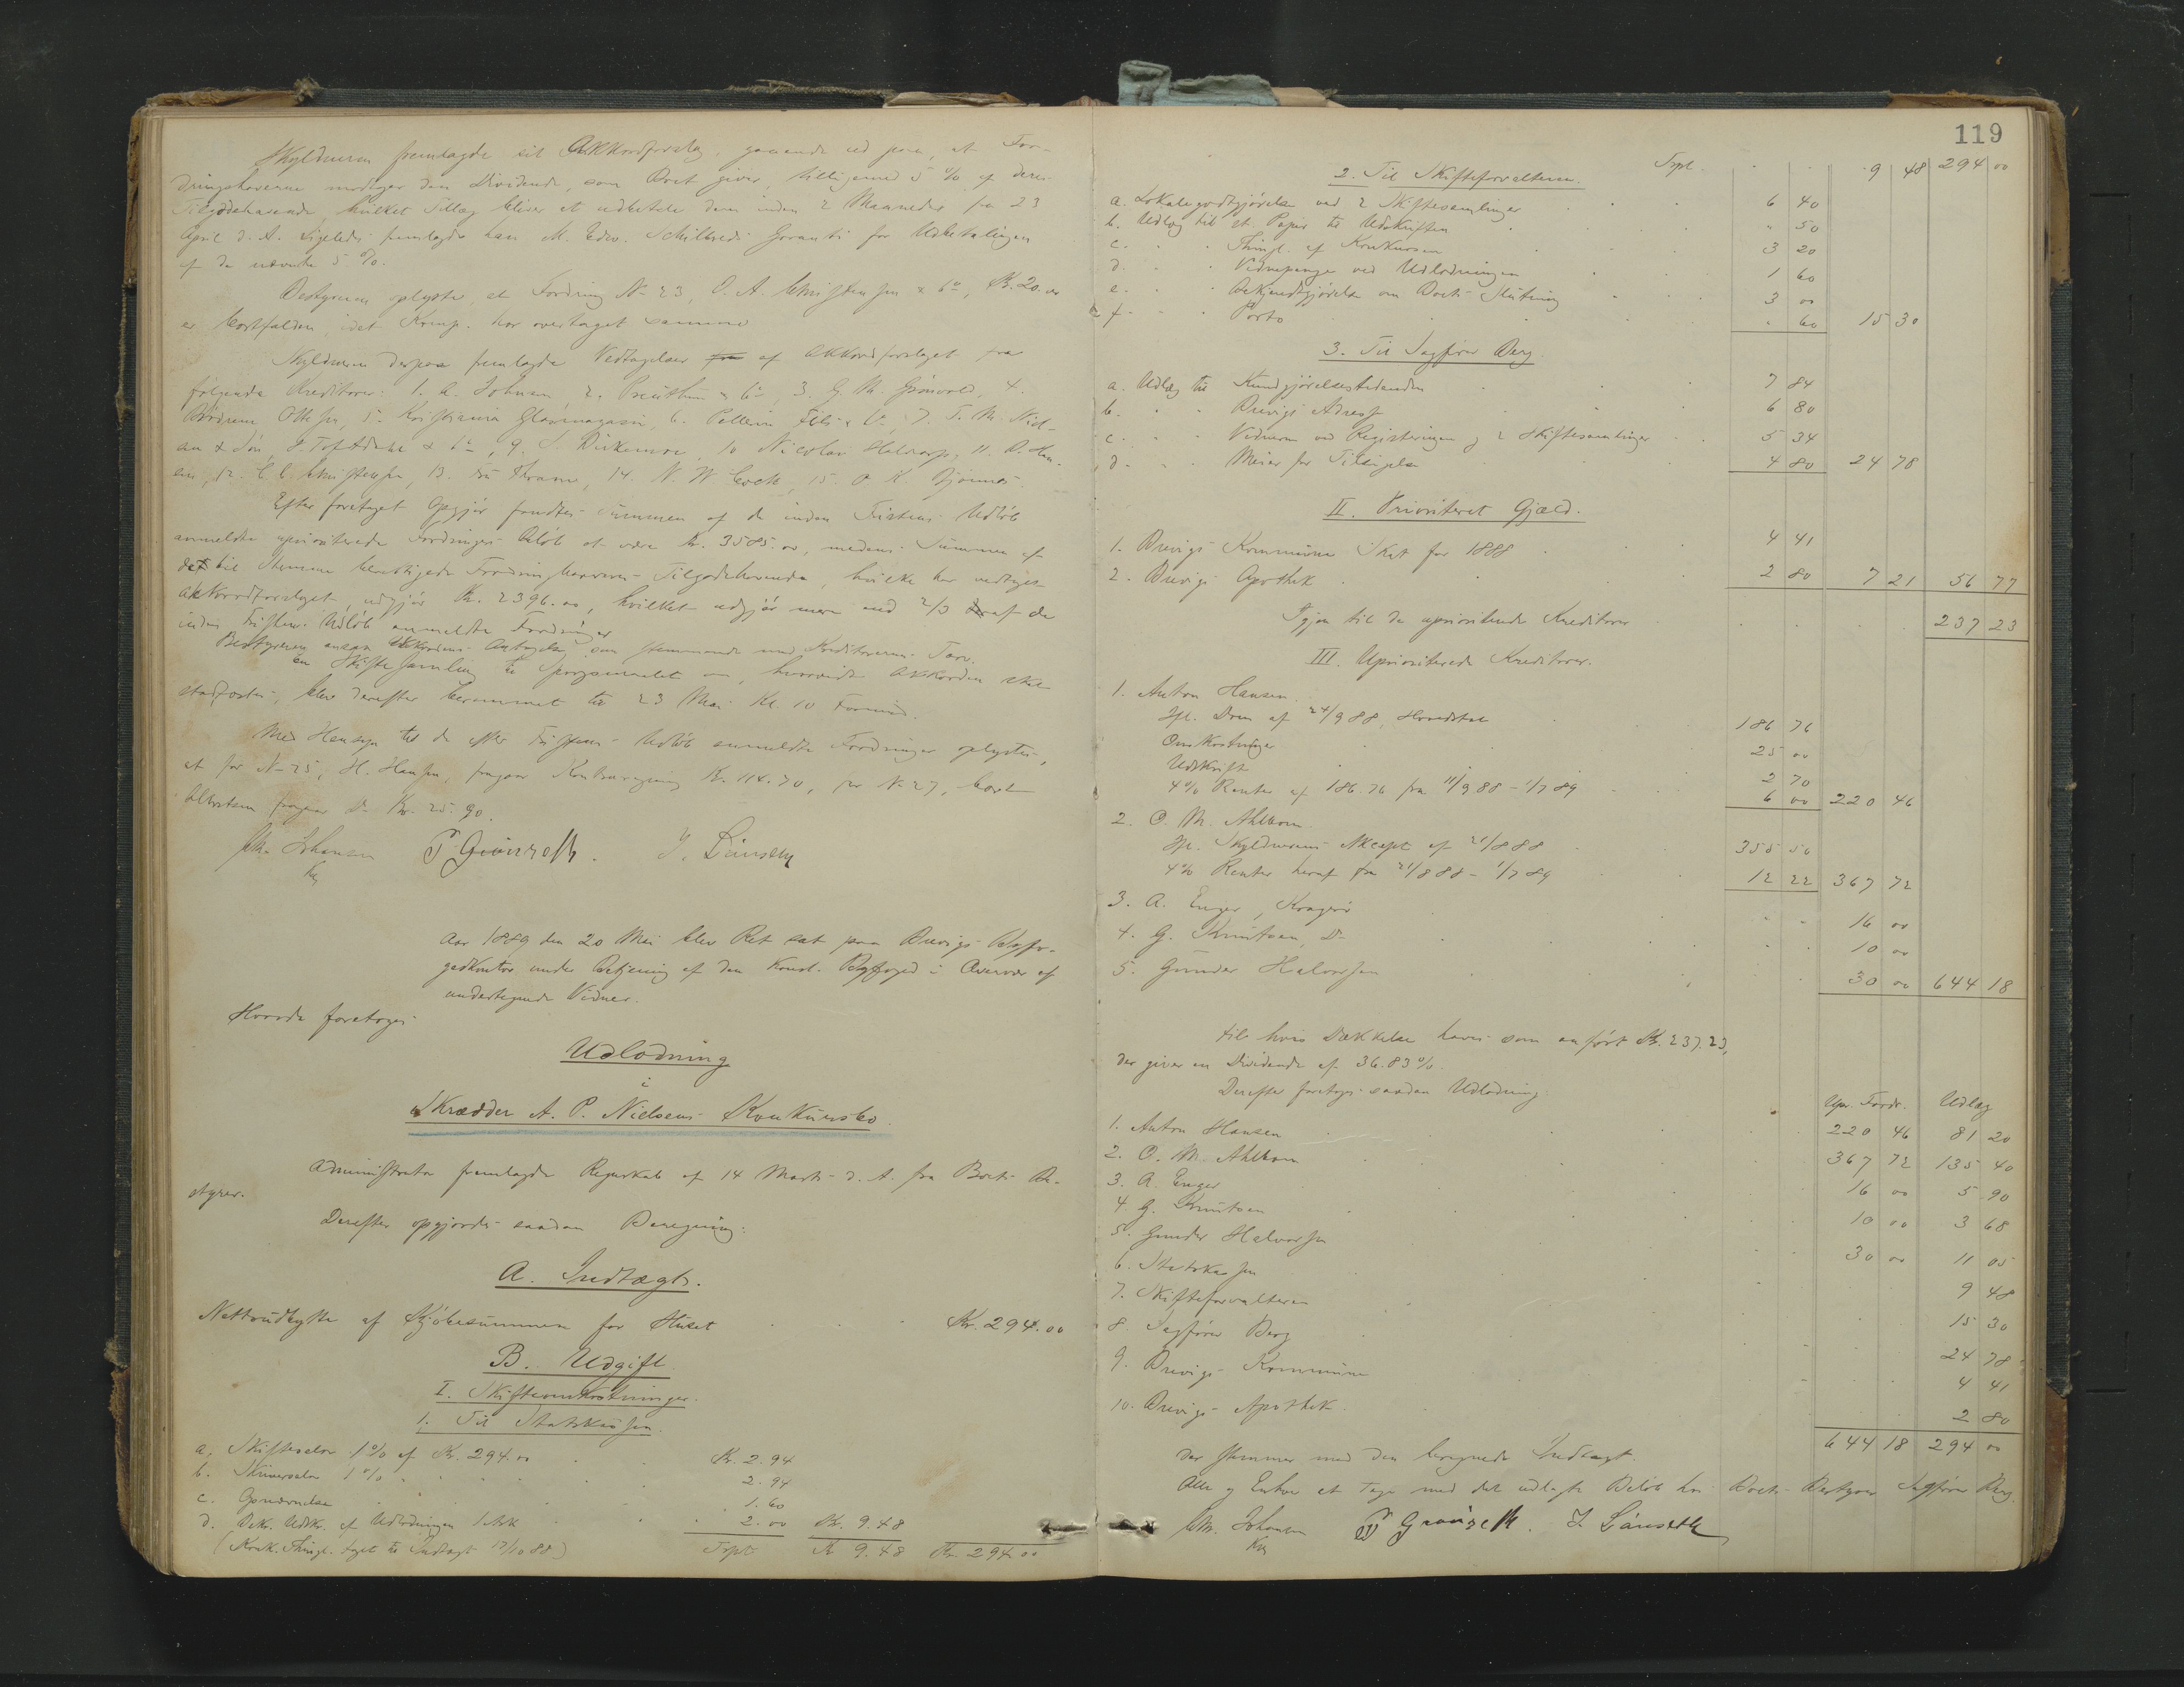 Skyldneren fremlagde sit Akkordforslag, gaaende ud paa, at For-
dringshaverne modtager den Dividende, som Boet giver, tilligemed 5 % af deres
Tilgodehavende, hvilket Tillæg bliver at udbetale dem inden 2 Maaneder fra 23
April d. A. Ligeledes fremlagde han M. Edv. Schilbreds Garanti for Udbetalingen
af de nævnte 5 %.
Bestyreren oplyste, at Fordring No 23, O. A. Christensen & Co, Kr. 20.00
er bortfalden, idet Komp. har overtaget samme
Skyldneren derpaa fremlagde Vedtagelser af Akkordforslaget fra
følgende Kreditorer: 1. A. Johnsen, 2. & Co, 3. G. M. Grönvold, 4.
Brødrene Ottesen, 5. Kristiania Glasmagasin, 6. Pellerin Fils & Co, 7. T. M. Niel-
sen & Søn, 8. & Co, 9. S. 10 Nicolai Halvorsp, 11. O. Han-
sen, 12. C. C. Christensen, 13. 14. N. W. Coch, 15. O. K. Bjönnes
Efter foretaget Opgjör fandtes Summen af de inden Fristens Udløb
anmeldte uprioriterede Fordringers Beløb at være Kr. 3585.00, medens Summen af
de til Stemme berettigede Fordringshaveres Tilgodehavende, hvilke har vedtaget
Akkordforslaget udgjör Kr. 2396.00, hvilket udgjör mere end 2/3 af de
inden Fristens Udløb anmeldte Fordringer
Bestyreren ansaa Akkordens Antagelse som stemmende med Kreditorernes Tarv.
En Skiftesamling til Spørgsmaalet om, hvorvidt Akkorden skal
stadfæstes, blev derefter berammet til 23 Mai Kl. 10 Formid.
Med Hensyn til de efter Fristens Udløb anmeldte Fordringer oplystes,
at for No 25, H. Hansen, fragaar Kontraregning Kr. 114.70, for No 27,
fragaar Do Kr. 25.90.
Chr. Johansen P. Grönseth. J. Lönseth
Kst
Aar 1889 den 20 Mai blev Ret sat paa Brevigs Byfo-
gedkontor under Betjening af den Konst. Byfoged i Overvær af
undertegnede Vidner.
Hvorda foretoges
Udlodning
i
Skrædder A. P. Nielsens Konkursbo.
Administrator fremlagde Regnskab af 14 Marts d. A. fra Boets Be-
styrer.
Derefter opgjordes saadan Beregning:
A. Indtægt.
Nettoudbytte af Kjöbesummen for Huset Kr. 294.00
B. Udgift
I. Skifteomkostninger.
1. Til Statskassen.
a. Skiftesalær 1% af Kr. 294.00 Kr. 2.94
b. Skriversalær 1% 2.94
c. Opnævnelse 1.60
d. Bekr. Udskr. af Udlodningen 1 Ark 2.00 Kr. 9.48
(Konk. Thingl. taget til Indtægt 17/10 88) Trpt Kr 9.48 Kr. 294.00
119
Trpt. 9 48 294 00
2. Til Skifteforvalteren.
a. Lokalegodtgjörelse ved 2 Skiftesamlinger 6 40
b. Udlæg til st. Papir til Udskriften " 50
c. " " Thingl. af Konkursen 3 20
d. " " Vidnepenge ved Udlodningen 1 60
e. " " Bekjendtgjörelse om Boets Slutning 3 00
f. " " Porto " 60 15 30
3. Til Sagfører Berg
a. Udlæg til Kundgjörelsestidenden 7 84
b. " " Brevigs Adresse 6 80
c. " " Vidnerne ved Registeringen og 2 Skiftesamlinger 5 34
d. " " Meier for Tilsigelse 4 80 24 78
II. Prioriteret Gjæld.
1. Brevigs Kommune Skat for 1888 4 41
2. Brevigs Apothek 2 80 7 21 56 77
Igjen til de uprioriterede Kreditorer 237 23
III. Uprioriterede Kreditorer.
1. Anton Hansen
Ifl. Dom af 24/9 88, Hovedstol 186 76
Omkostninger 25 00
Udskrift 2 70
4% Renter af 186.76 fra 11/9 88 - 1/7 89 6 00 220 46
2. O. M. Ahlbom
Ifl. Skyldnerens Akcept af 21/8 88 355 50
4% Renter heraf fra 21/8 88 - 1/7 89 12 22 367 72
3. A. Enger, Kragerö 16 00
4. G. Knutsen, Do 10 00
5. Gunder Halvorsen 30 00 644 18
til hvis Dækkelse haves som anført Kr. 237.23,
der giver en Dividende af 36.83%.
Derefter foretoges saadan Udlodning
Upr. Fordr. Udlæg
1. Anton Hansen 220 46 81 20
2. O. M. Ahlbom 367 72 135 40
3. A. Enger 16 00 5 90
4. G. Knutsen 10 00 3 68
5. Gunder Halvorsen 30 00 11 05
6. Statskassen 9 48
7. Skifteforvalteren 15 30
8. Sagfører Berg 24 78
9. Brevigs Kommune 4 41
10. Brevigs Apothek 2 80
644 18 294 00
der stemmer med den beregnede Indtægt.
Alle og Enhver at tage med det udlagte Beløb hos Boets Bestyrer Sagfører Berg.
Chr. Johansen P Grönseth. J. Lönseth
Kst